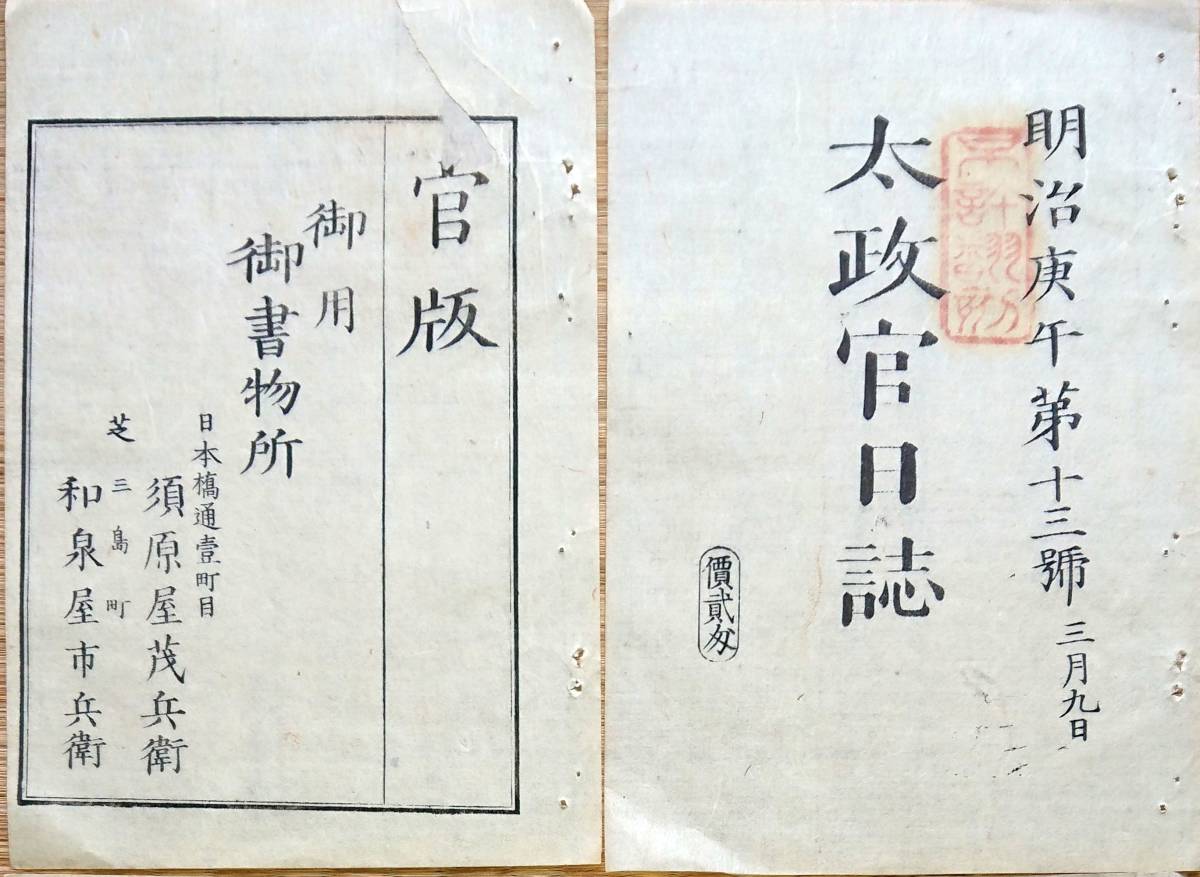 明治庚午第十三號 三月九日
不許翻刻
太政官日誌
價貳匁
官版
御用
御書物所
日本橋通壹町目
須原屋茂兵衛
芝三島町
和泉屋市兵衛